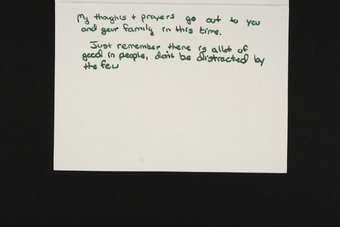 My thoughts + prayers go out to you
and your family in this time.
Just remember there is allot of
good in people, dont be distracted by
the few